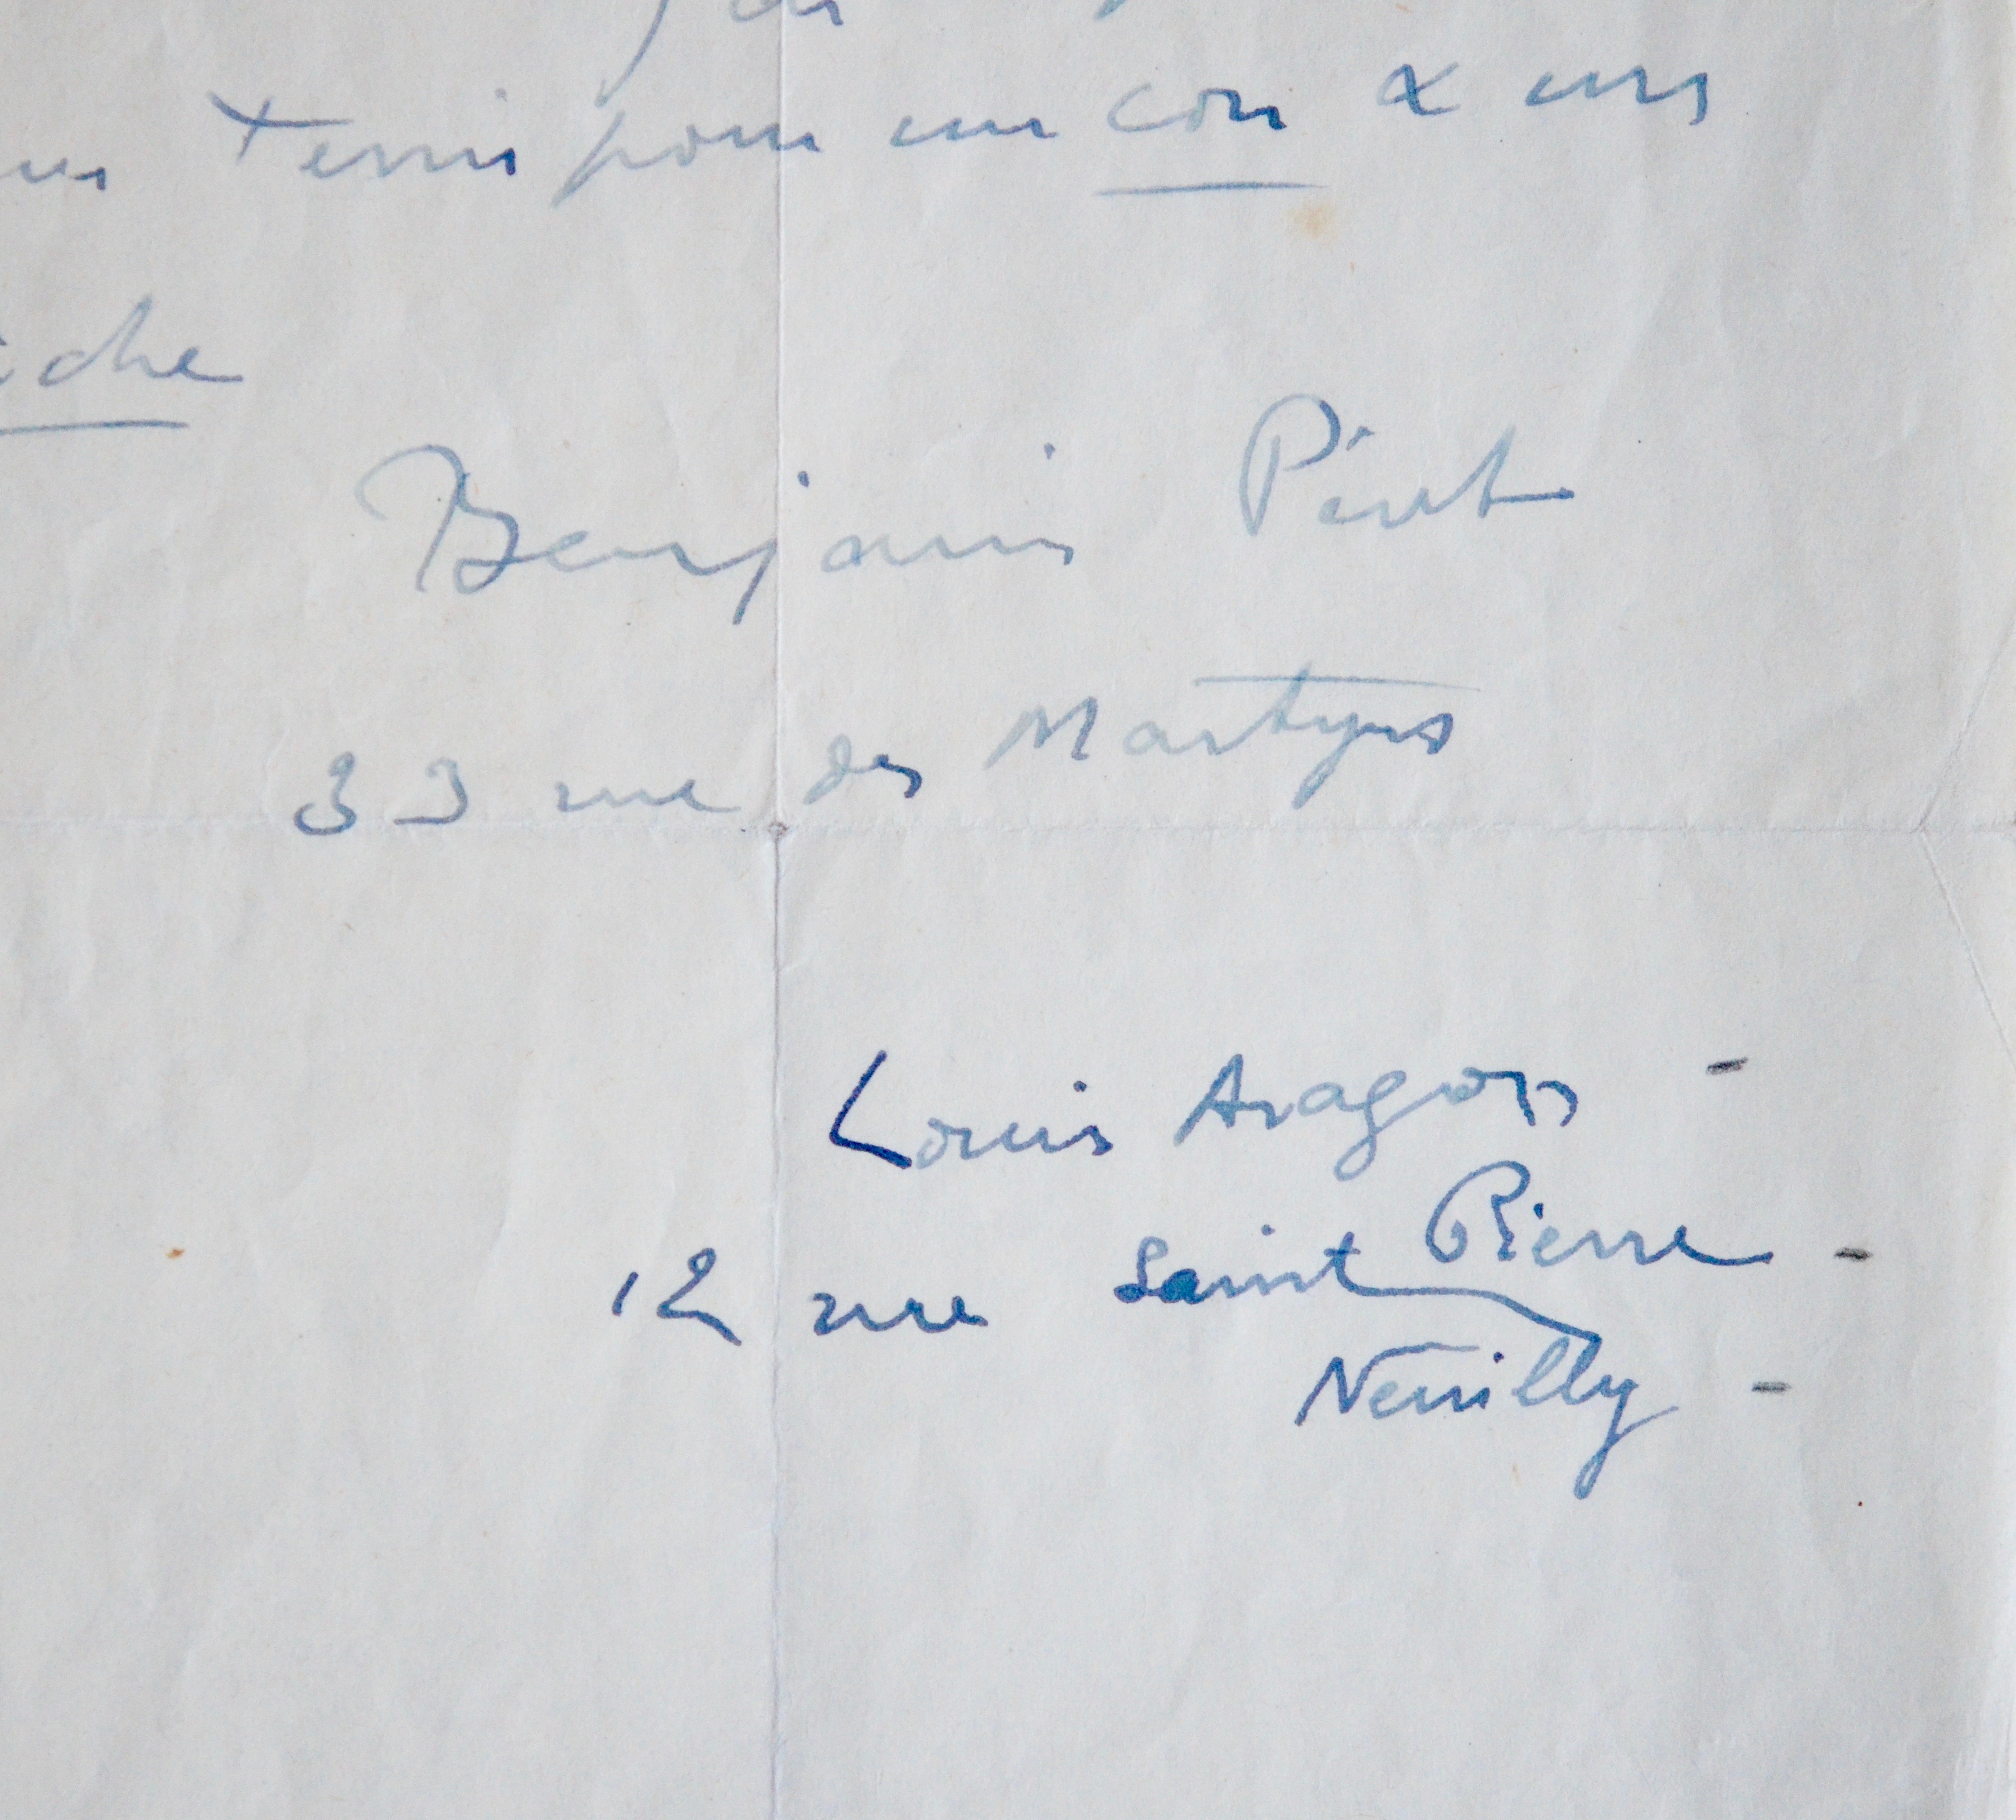 de
tenir pour un con & une
che
Benjamin Péret
33 rue des Martyrs
Louis Aragon -
12 rue Saint Pierre -
Neuilly -